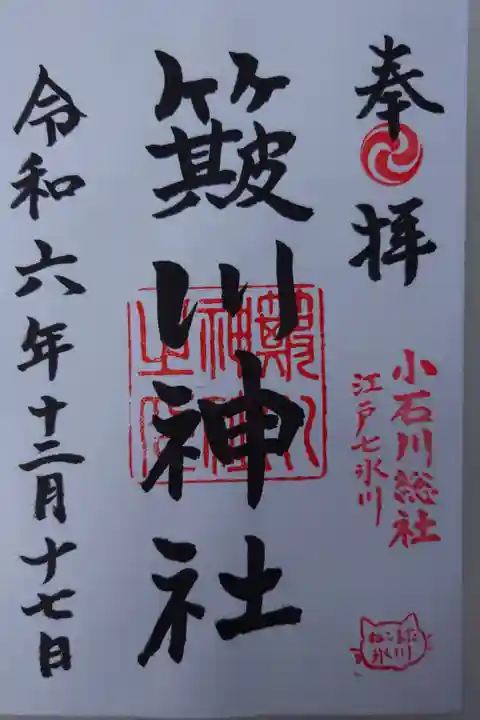 奉拝
小石川総社
江戸七氷川
ねこまた
氷川
簸川神社
令和六年十二月十七日